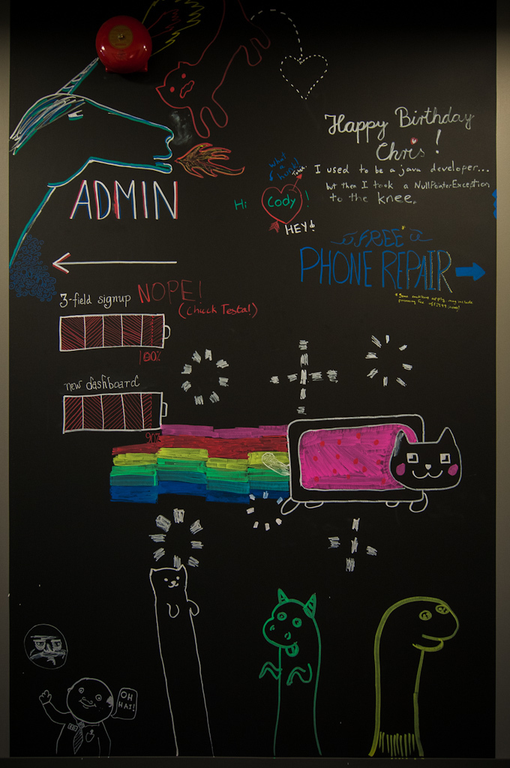 Happy Birthday
Chris!
I used to be a java developer...
but then I took a NullPointerException
to the knee.
ADMIN
Hi Cody!
HEY!
FREE
PHONE REPAIR
3-field signup
NOPE!
(Chuck Testa!)
100%
new dashboard
90%
OH
HAI!